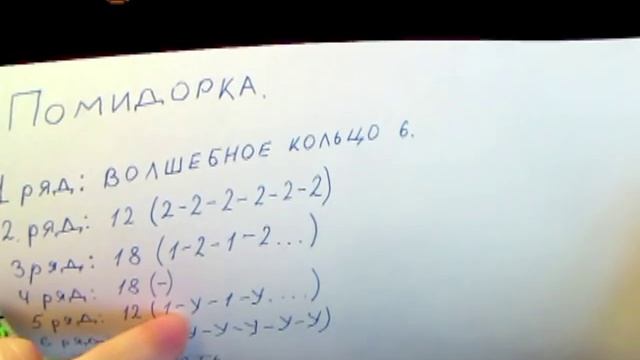 ПОМИДОРКА.
1 РЯД: ВОЛШЕБНОЕ КОЛЬЦО 6.
2. РЯД: 12 (2-2-2-2-2-2)
3 РЯД: 18 (1-2-1-2...)
4 РЯД: 18 (-)
5 РЯД: 12 (1-У-1-У....)
У-У-У-У-У)